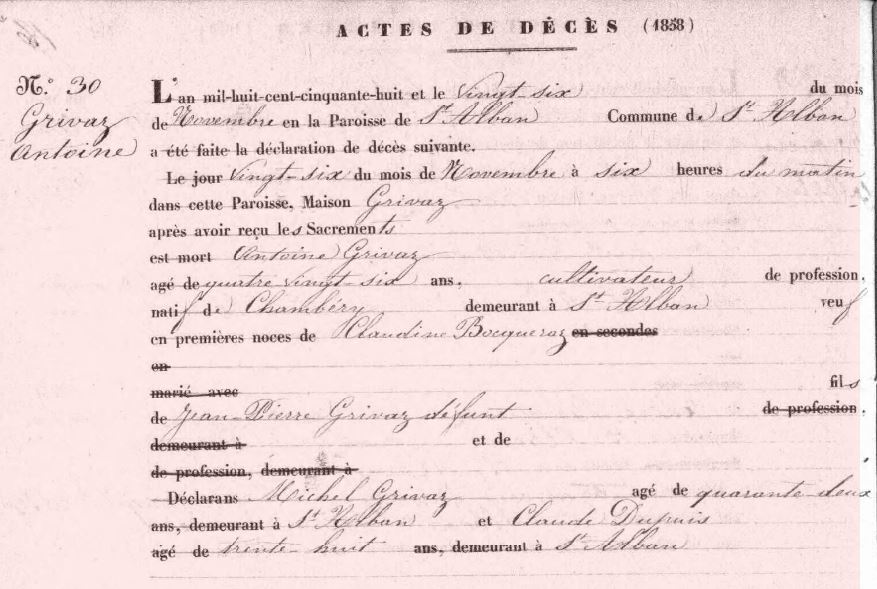 ACTES DE DÉCÈS (1858)
N.° 30
Grivaz
Antoine
L'an mil-huit-cent-cinquante-huit et le vingt-six du mois
de Novembre en la Paroisse de St Alban Commune de St Alban
a été faite la déclaration de décès suivante.
Le jour vingt-six du mois de Novembre à six heures du matin
dans cette Paroisse, Maison Grivaz
après avoir reçu les Sacrements
est mort Antoine Grivaz
agé de quatre vingt-six ans, cultivateur de profession,
natif de Chambéry demeurant à St Alban veuf
en premières noces de Claudine Bocqueraz en secondes
en
marié avec fils
de Jean-Pierre Grivaz défunt de profession,
demeurant à et de
de profession, demeurant à
Déclarans Michel Grivaz agé de quarante deux
ans, demeurant à St Alban et Claude Dupuis
agé de trente-huit ans, demeurant à St Alban